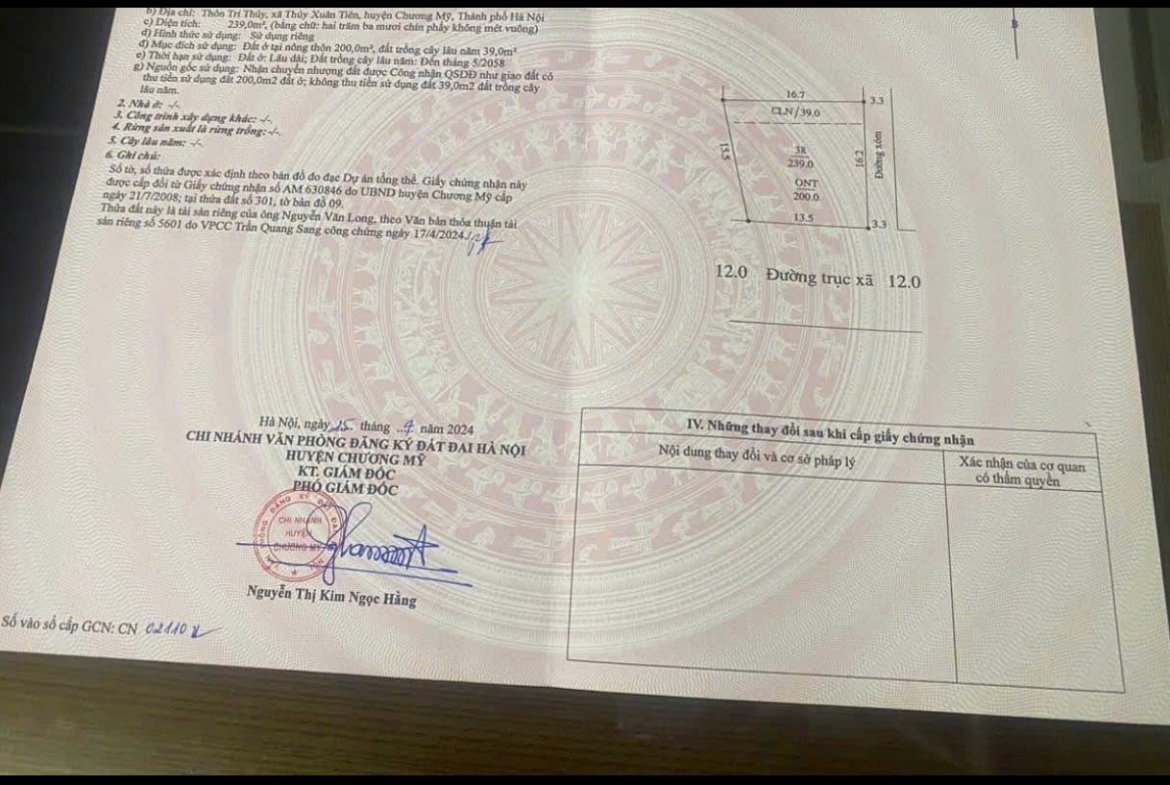 b) Địa chỉ: Thôn Trí Thủy, xã Thủy Xuân Tiên, huyện Chương Mỹ, Thành phố Hà Nội
c) Diện tích: 239,0m², (bằng chữ: hai trăm ba mươi chín phẩy không mét vuông)
d) Hình thức sử dụng: Sử dụng riêng
đ) Mục đích sử dụng: Đất ở tại nông thôn 200,0m², đất trồng cây lâu năm 39,0m²
e) Thời hạn sử dụng: Đất ở: Lâu dài; Đất trồng cây lâu năm: Đến tháng 5/2058
g) Nguồn gốc sử dụng: Nhận chuyển nhượng đất được Công nhận QSDĐ như giao đất có
thu tiền sử dụng đất 200,0m2 đất ở; không thu tiền sử dụng đất 39,0m2 đất trồng cây
lâu năm.
2. Nhà ở: -/-.
3. Công trình xây dựng khác: -/-.
4. Rừng sản xuất là rừng trồng: -/-.
5. Cây lâu năm: -/-.
6. Ghi chú:
Số tờ, số thửa được xác định theo bản đồ đo đạc Dự án tổng thể. Giấy chứng nhận này
được cấp đổi từ Giấy chứng nhận số AM 630846 do UBND huyện Chương Mỹ cấp
ngày 21/7/2008; tại thửa đất số 301, tờ bản đồ 09.
Thửa đất này là tài sản riêng của ông Nguyễn Văn Long, theo Văn bản thỏa thuận tài
sản riêng số 5601 do VPCC Trần Quang Sang công chứng ngày 17/4/2024./.
B
16.7
3.3
CLN/39.0
15.5
38
239.0
16.2
Đường xóm
ONT
200.0
13.5
3.3
12.0 Đường trục xã 12.0
Hà Nội, ngày 15 tháng 7 năm 2024
CHI NHÁNH VĂN PHÒNG ĐĂNG KÝ ĐẤT ĐAI HÀ NỘI
HUYỆN CHƯƠNG MỸ
KT. GIÁM ĐỐC
PHÓ GIÁM ĐỐC
CHI NHÁNH
HUYỆN
CHƯƠNG MỸ
Nguyễn Thị Kim Ngọc Hằng
Số vào sổ cấp GCN: CN 02110
IV. Những thay đổi sau khi cấp giấy chứng nhận
Nội dung thay đổi và cơ sở pháp lý
Xác nhận của cơ quan
có thẩm quyền